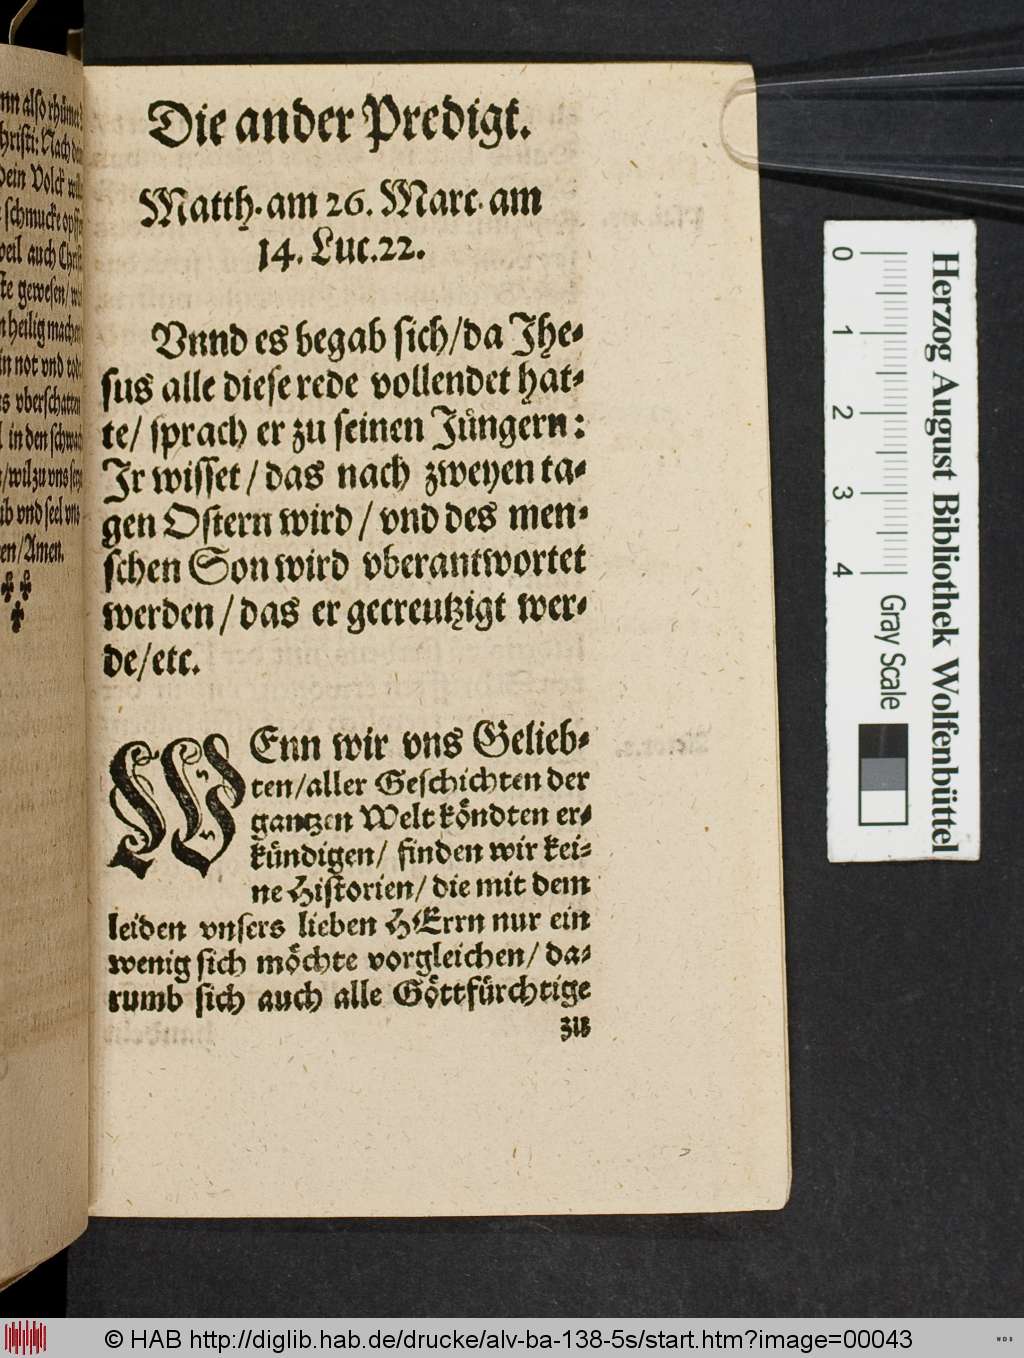 nn also rhüme
hristi: Nach
Dein Volck
schmucke
weil auch Chri
te gewesen/
n heilig mache
in not vnd
s vberschatten
in den
/ wil zu vns
ib vnd seel vns
en/Amen.
Die ander Predigt.
Matth. am 26. Marc. am
14. Luc. 22.
Vnnd es begab sich/da Jhe-
sus alle diese rede vollendet hat-
te/ sprach er zu seinen Jüngern:
Jr wisset/das nach zweyen ta-
gen Ostern wird/vnd des men-
schen Son wird vberantwortet
werden/das er gecreutzigt wer-
de/etc.
WEnn wir vns Gelieb-
ten/aller Geschichten der
gantzen Welt köndten er-
kündigen/ finden wir kei-
ne Historien/ die mit dem
leiden vnsers lieben HErrn nur ein
wenig sich möchte vorgleichen/ da-
rumb sich auch alle Göttfürchtige
zu
0 1 2 3 4
Gray Scale
Herzog August Bibliothek Wolfenbüttel
© HAB http://diglib.hab.de/drucke/alv-ba-138-5s/start.htm?image=00043
WDB